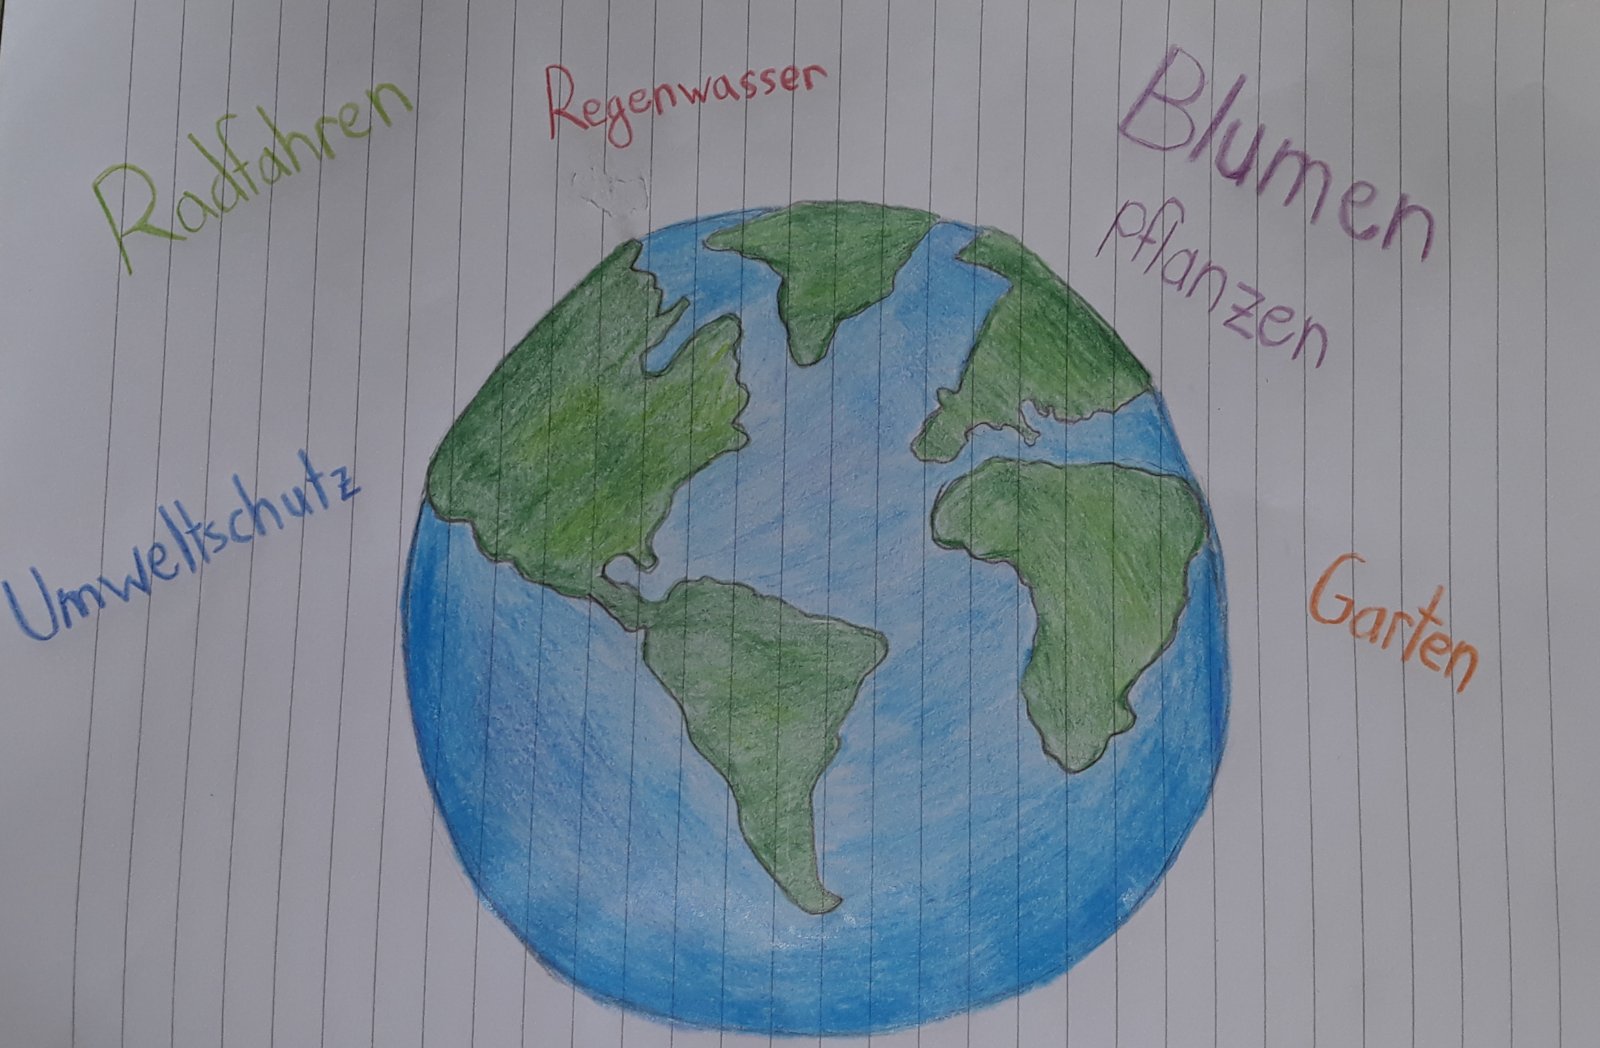 Radfahren
Regenwasser
Blumen
pflanzen
Umweltschutz
Garten